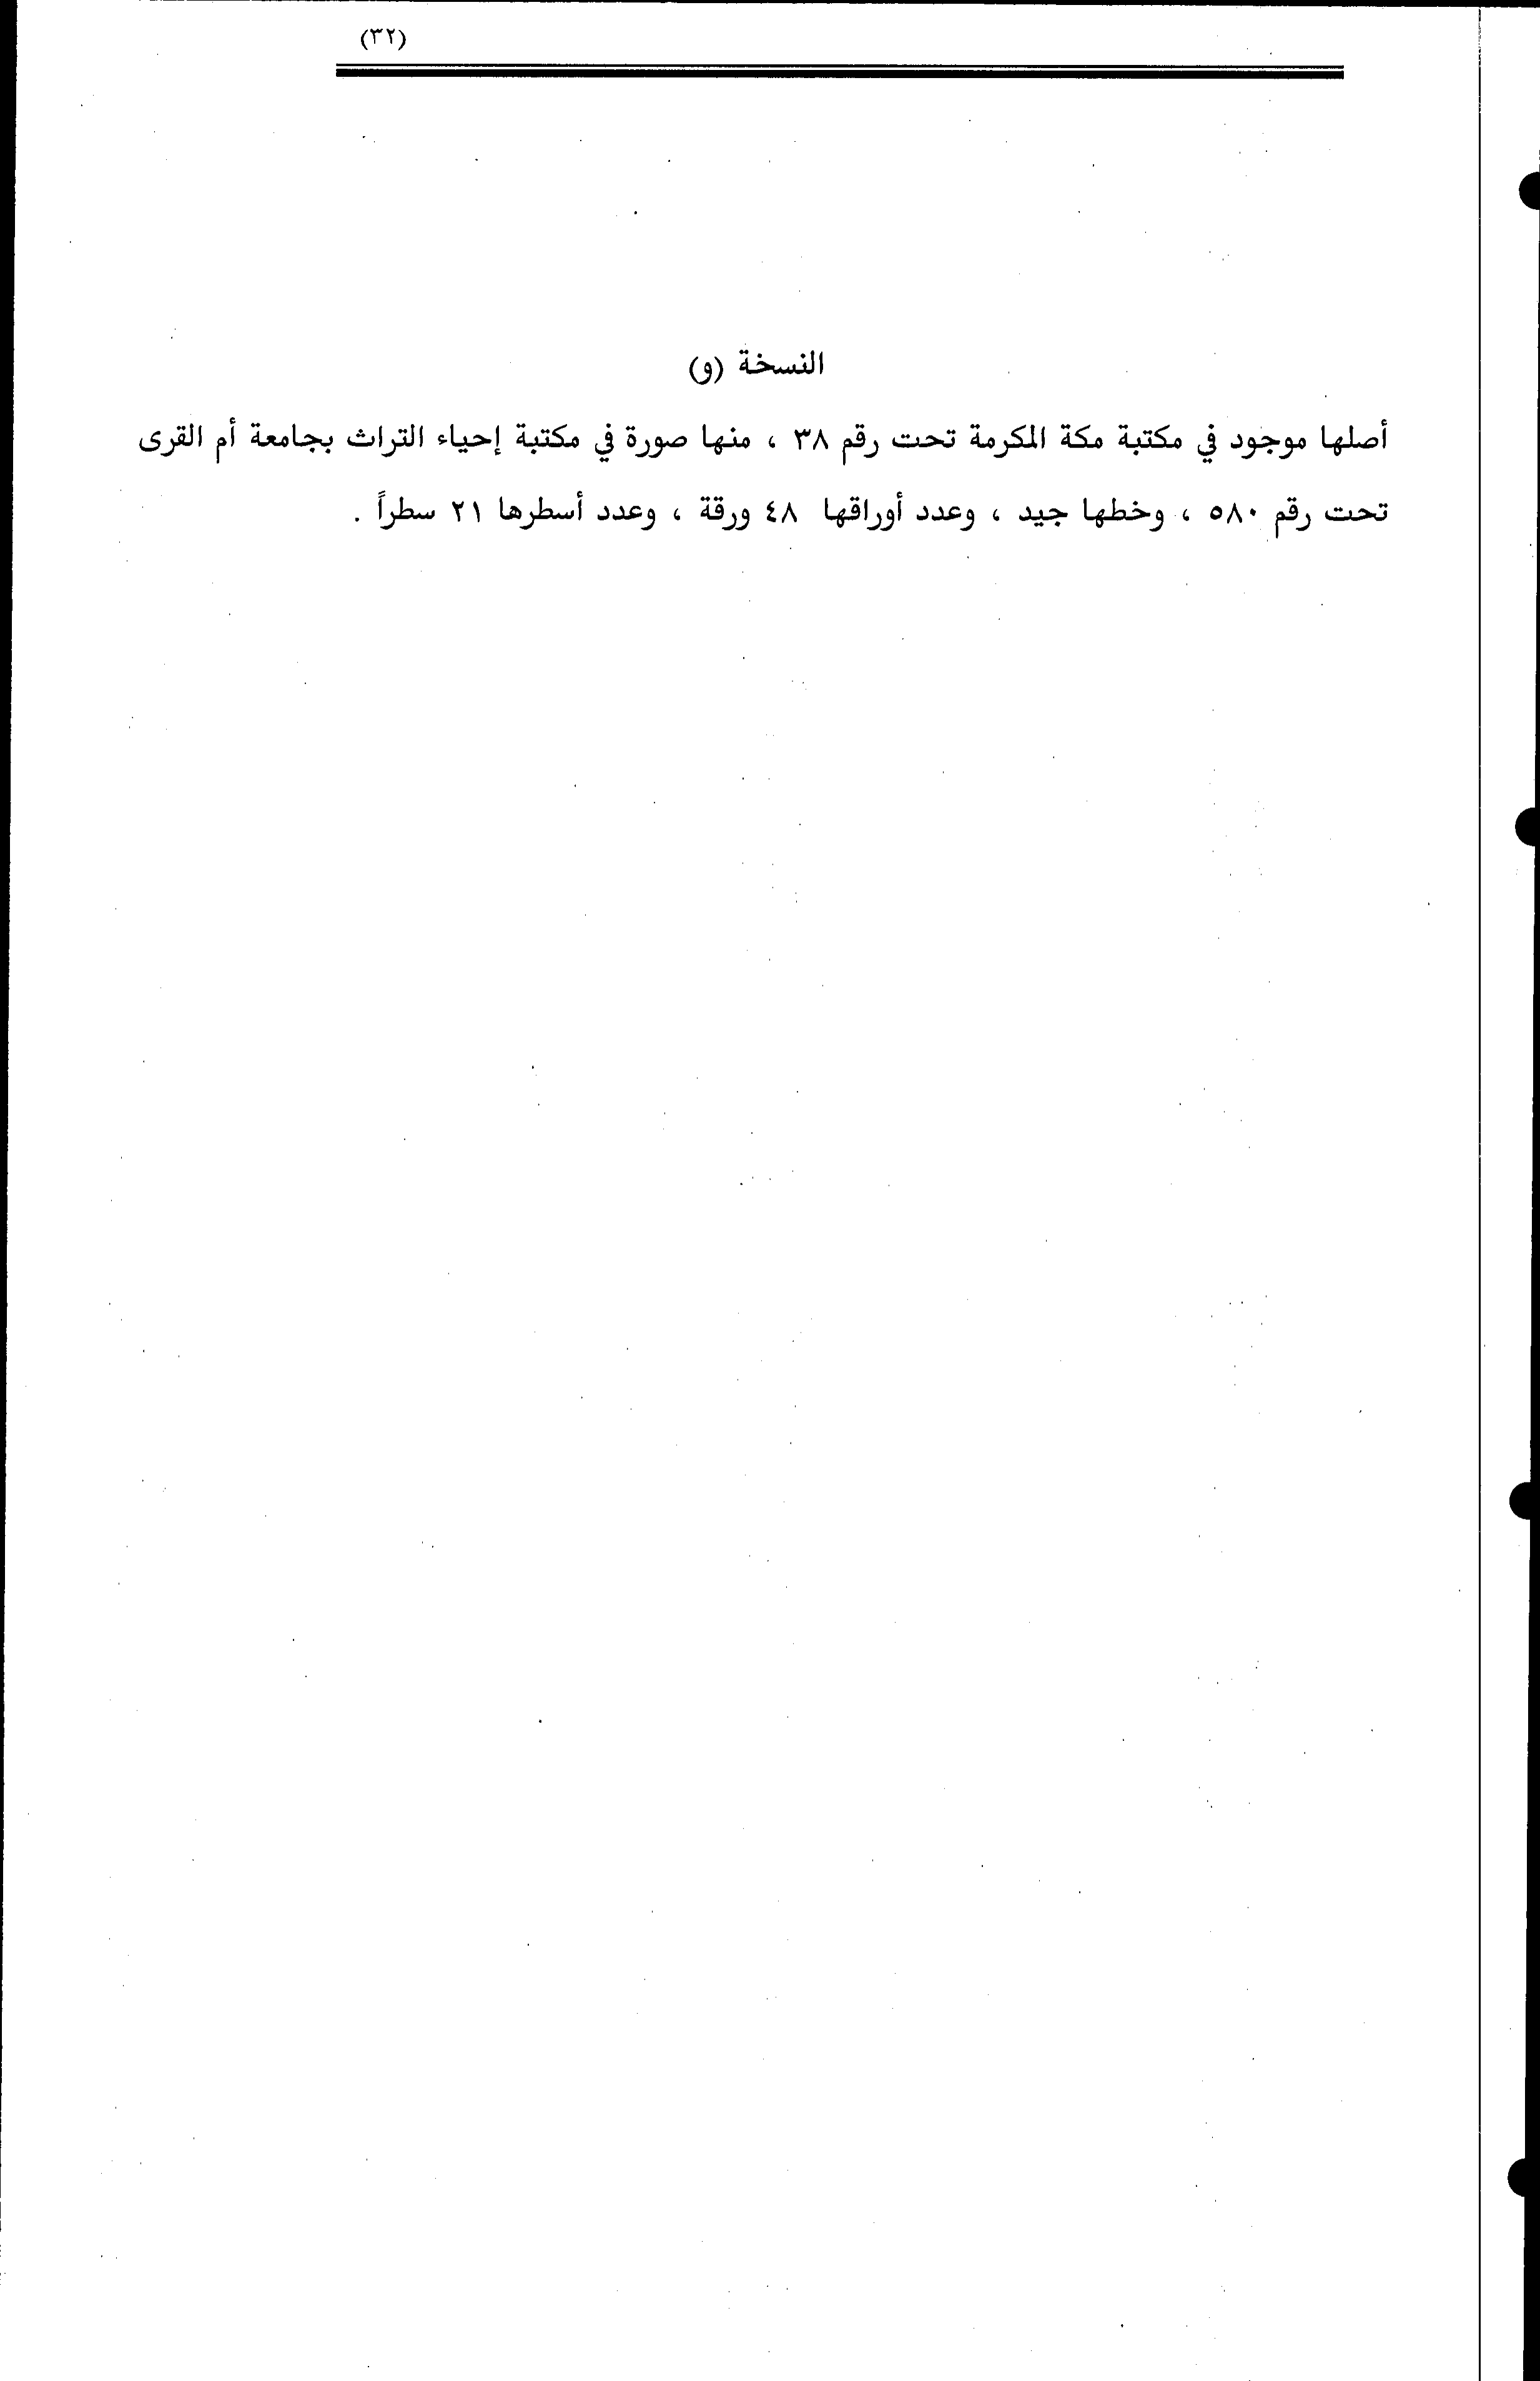 (٣٢)
النسخة (و)
أصلها موجود في مكتبة مكة المكرمة تحت رقم ٣٨ ، منها صورة في مكتبة إحياء التراث بجامعة أم القرى
تحت رقم ٥٨٠ ، وخطها جيد ، وعدد أوراقها ٤٨ ورقة ، وعدد أسطرها ٢١ سطراً .